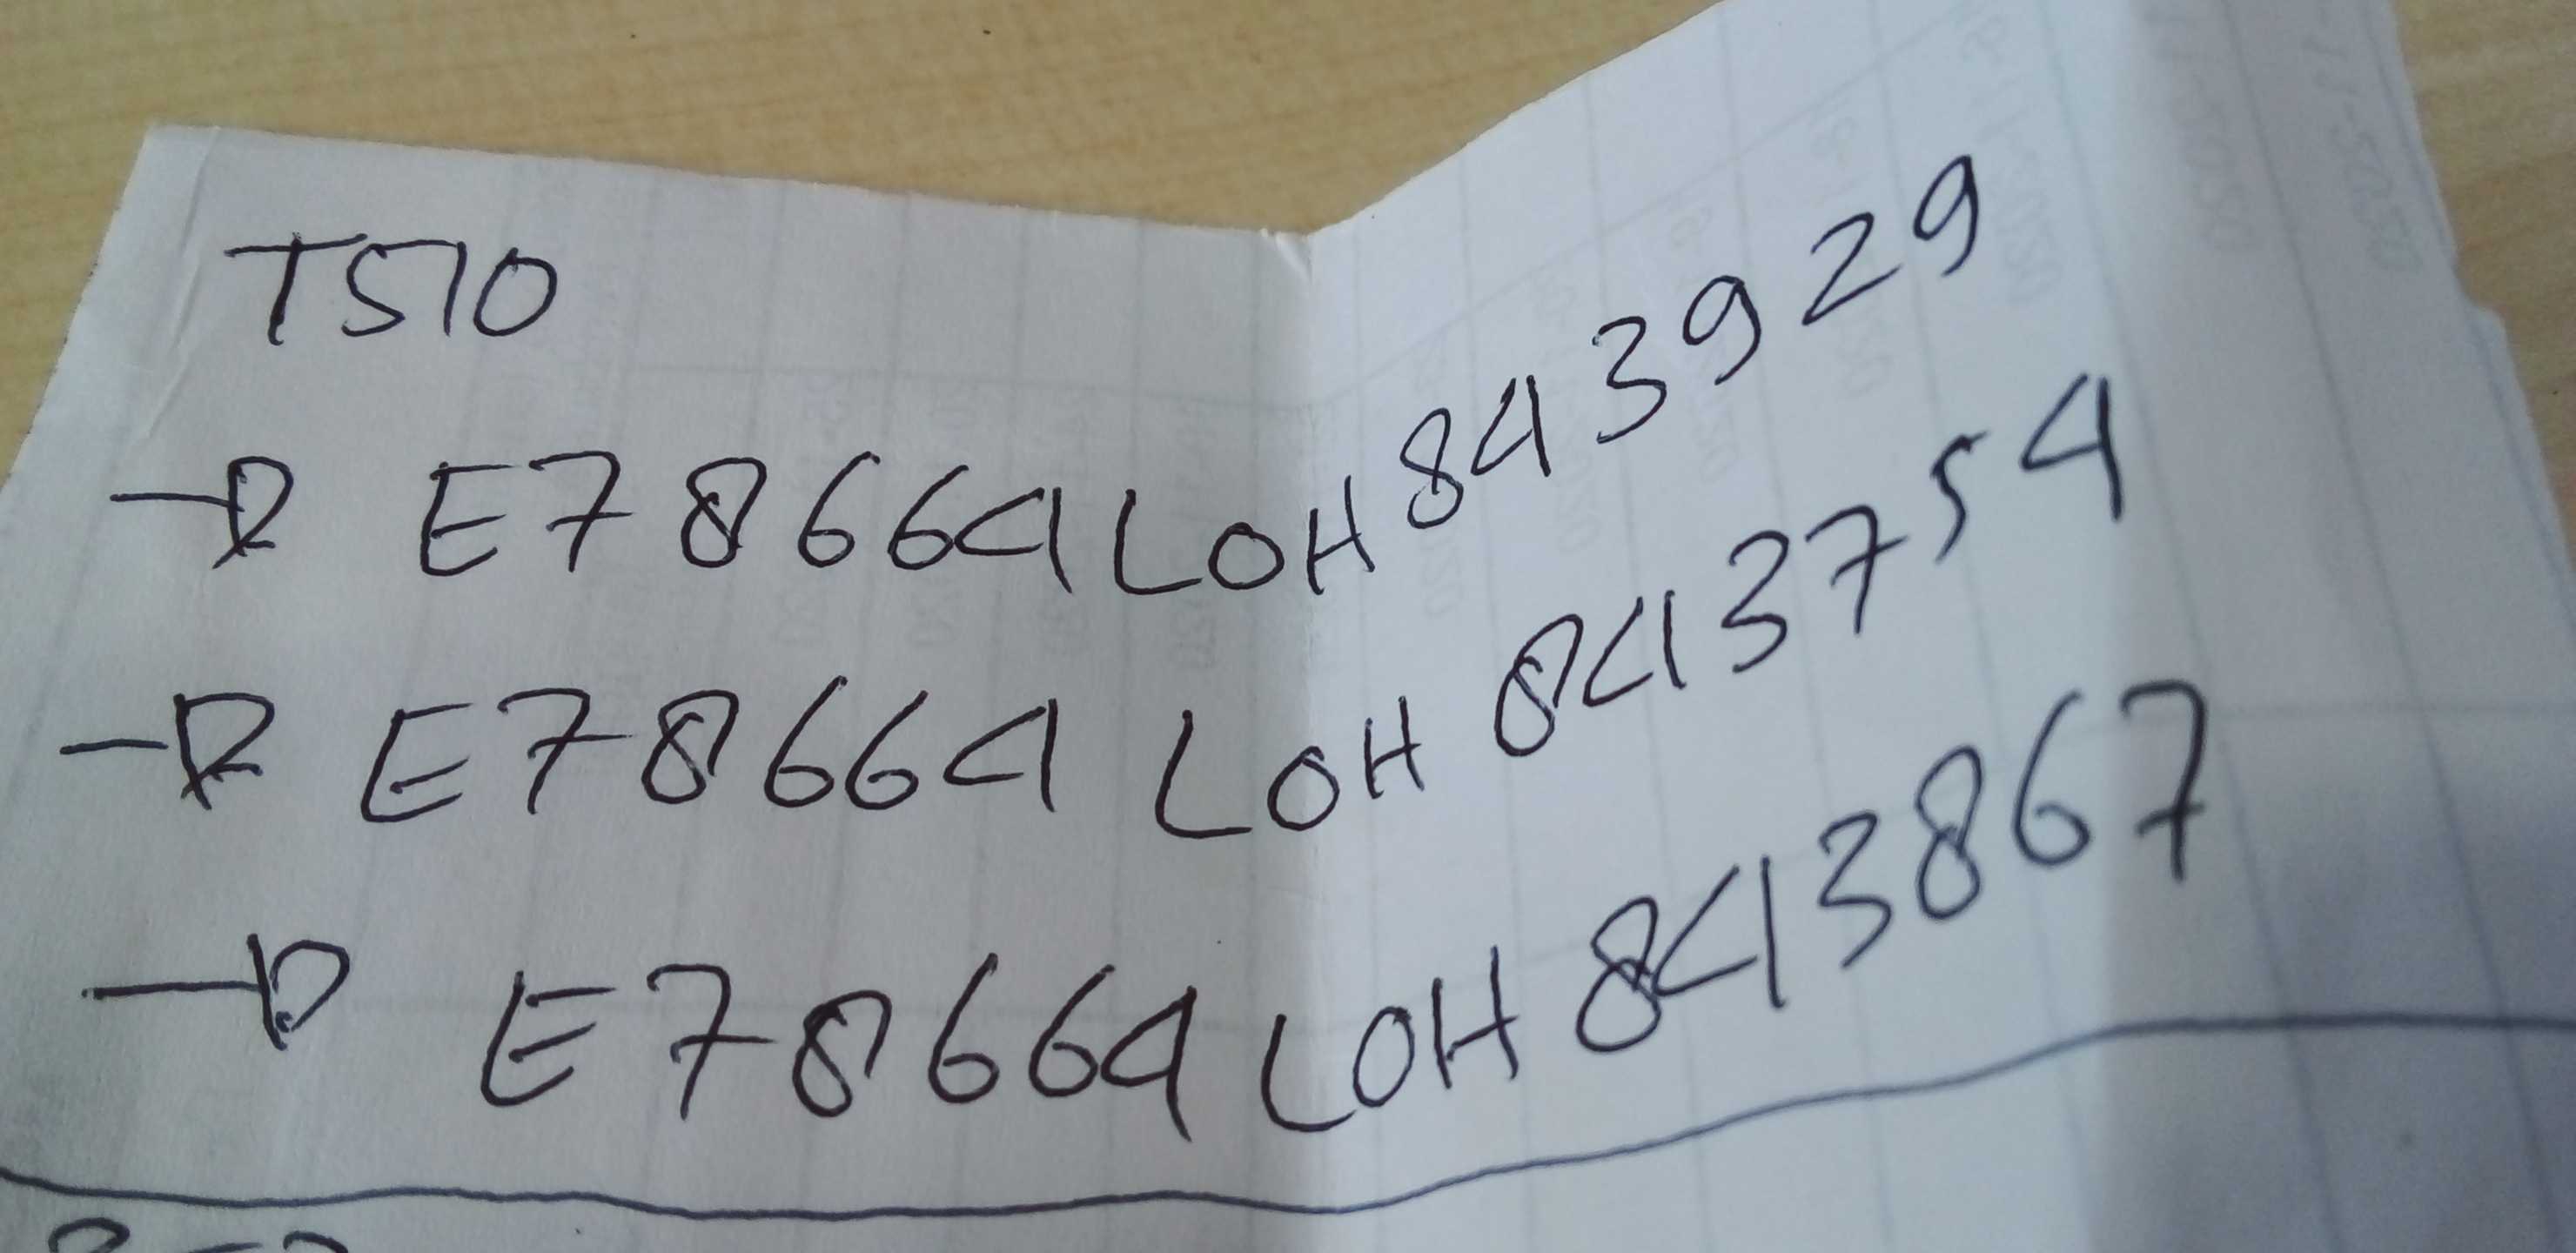 T510
→ E78664L0H843929
→ E78664L0H843754
→ E78664L0H843867